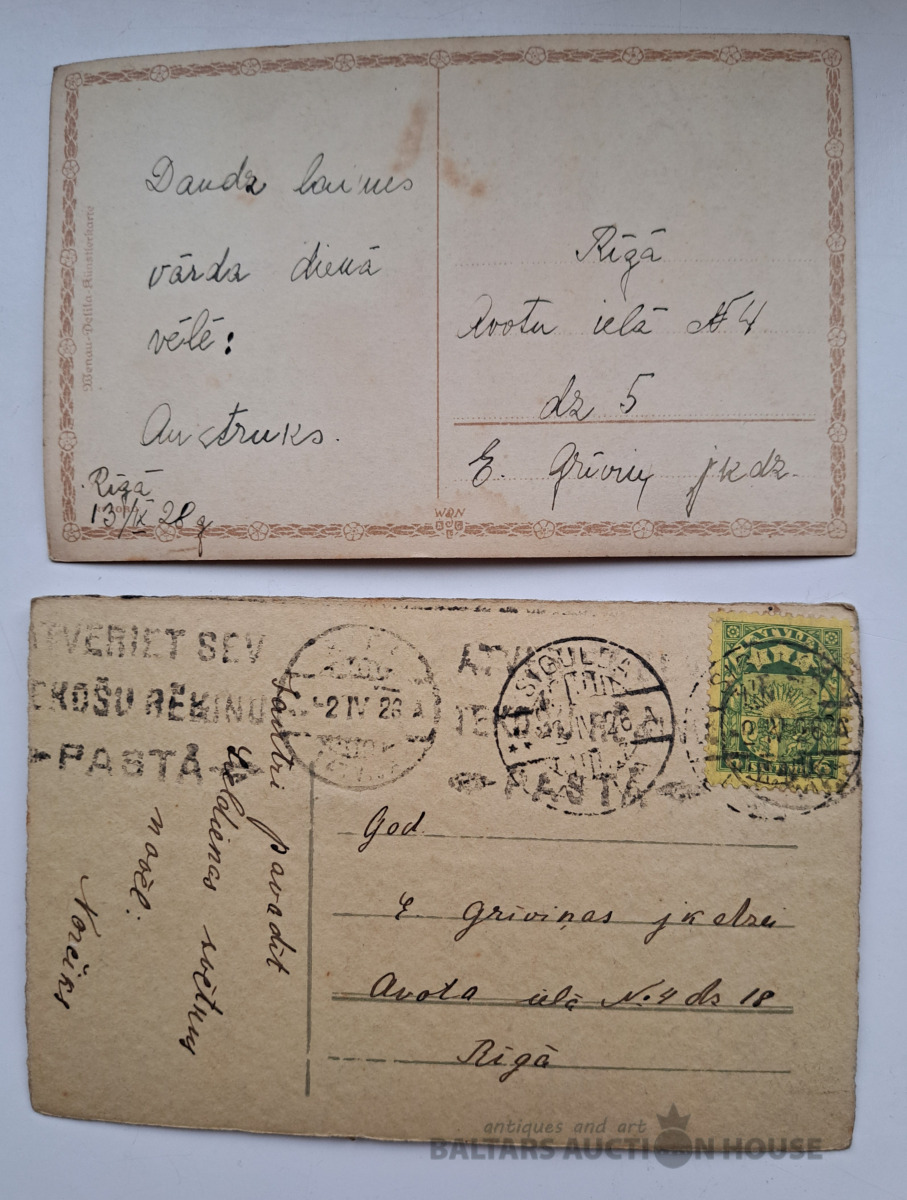 Daudz laimes
vārda dienā
vēlē:
Austruks.
Rīgā
13/IX 28 g
Wenau-Delila-Künstlerkarte
Rīgā
Avotu ielā № 4
dz 5
E. Grīviņ jkdz.
WPN
ATVERIET SEV
TEKOŠU RĒĶINU
PASTĀ
-2 IV 26 A
SIGULDA
PASTĀ
LATVIJA
Jautri pavadīt
Lieldienas svētkus
novēl:
God.
E Grīviņas jkdzei
Avota ielā No. 4 ds 18
Rīgā
antiques and art
BALTARS AUCTION HOUSE